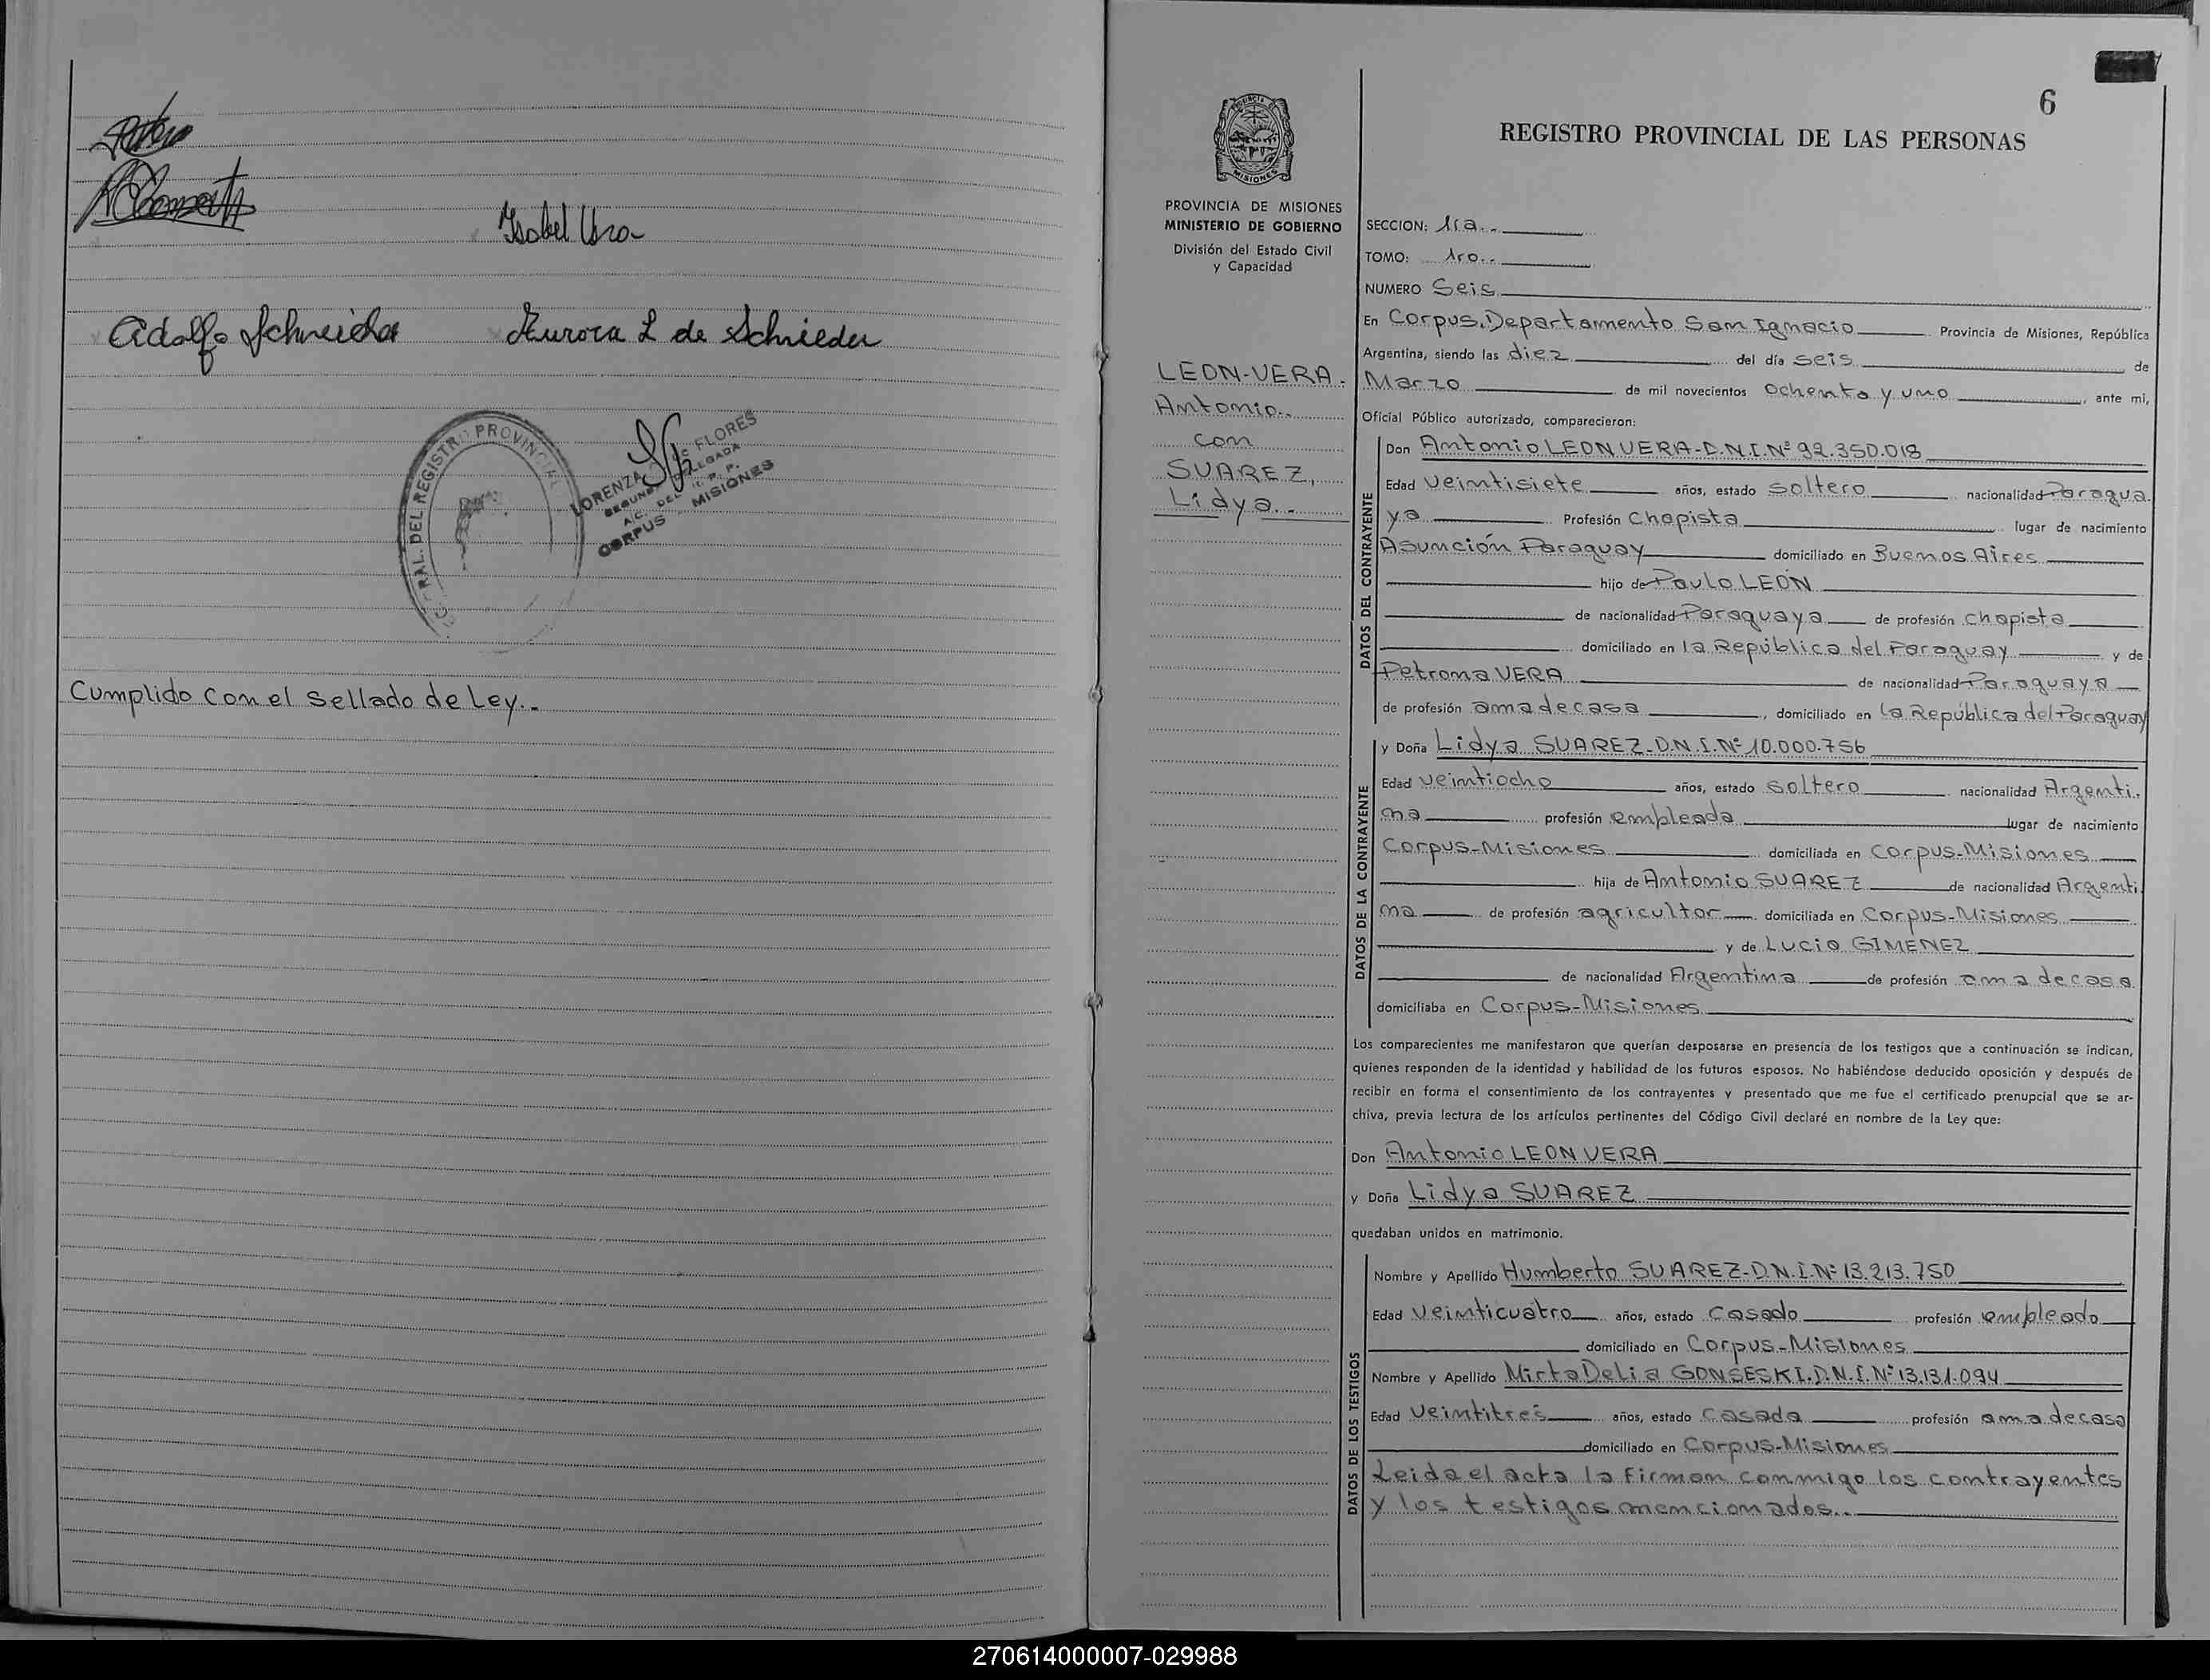 Isabel
Adolfo Schneider Aurora L de Schnieder
GRAL. DEL REGISTRO PROVINCIAL
LORENZA FLORES
SEGUNDA DELEGADA
A/C. DEL R. P. P.
CORPUS - MISIONES
Cumplido con el sellado de Ley.-
6
PROVINCIA DE MISIONES
MINISTERIO DE GOBIERNO
División del Estado Civil
y Capacidad
LEON-VERA.
Antonio..
con
SUAREZ,
Lidya.-
REGISTRO PROVINCIAL DE LAS PERSONAS
SECCION: 1ra.-
TOMO: 1ro..
NUMERO Seis
En Corpus, Departamento San Ignacio Provincia de Misiones, República
Argentina, siendo las diez del día seis de
Marzo de mil novecientos ochenta y uno, ante mi,
Oficial Público autorizado, comparecieron:
DATOS DEL CONTRAYENTE
Don Antonio LEON VERA-D.N.I.Nº 92.350.018
Edad veintisiete años, estado soltero nacionalidad Paragua.
ya Profesión Chapista lugar de nacimiento
Asunción Paraguay domiciliado en Buenos Aires
hijo de Paulo LEON
de nacionalidad Paraguaya de profesión chapista
domiciliado en la República del Paraguay y de
Petrona VERA de nacionalidad Paraguaya
de profesión ama de casa, domiciliado en la República del Paraguay
DATOS DE LA CONTRAYENTE
y Doña Lidya SUAREZ-D.N.I.Nº 10.000.756
Edad veintiocho años, estado soltero nacionalidad Argenti.
na profesión empleada lugar de nacimiento
Corpus-Misiones domiciliada en Corpus-Misiones
hija de Antonio SUAREZ de nacionalidad Argenti.
na de profesión agricultor domiciliada en Corpus-Misiones
y de Lucia GIMENEZ
de nacionalidad Argentina de profesión ama de casa
domiciliaba en Corpus-Misiones
Los comparecientes me manifestaron que querían desposarse en presencia de los testigos que a continuación se indican,
quienes responden de la identidad y habilidad de los futuros esposos. No habiéndose deducido oposición y después de
recibir en forma el consentimiento de los contrayentes y presentado que me fue el certificado prenupcial que se ar-
chiva, previa lectura de los artículos pertinentes del Código Civil declaré en nombre de la Ley que:
Don Antonio LEON VERA
y Doña Lidya SUAREZ
quedaban unidos en matrimonio.
DATOS DE LOS TESTIGOS
Nombre y Apellido Humberto SUAREZ-D.N.I.Nº 13.213.750
Edad veinticuatro años, estado casado profesión empleado
domiciliado en Corpus-Misiones
Nombre y Apellido Mirta Delia GONSESKI.D.N.I.Nº 13.131.094
Edad veintitres años, estado casada profesión ama de casa
domiciliado en Corpus-Misiones
Leida el acta la firman conmigo los contrayentes
y los testigos mencionados..
270614000007-029988